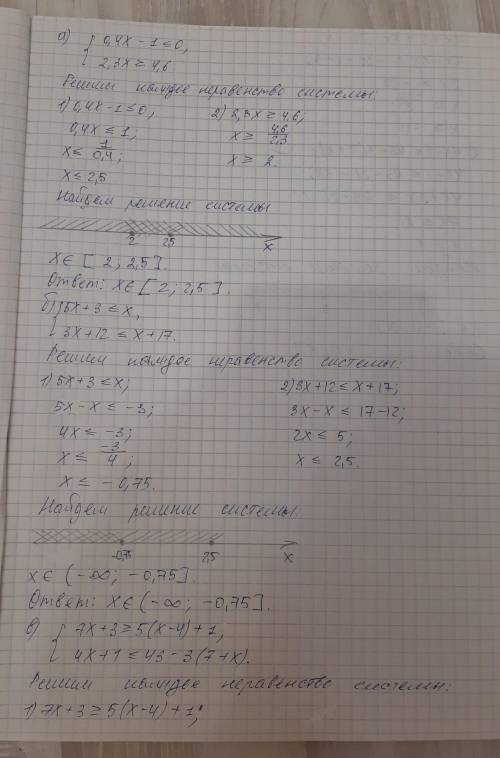 а) { 0,4x - 1 ≤ 0,
2,3x ≥ 4,6
Решим каждое неравенство системы:
1) 0,4x - 1 ≤ 0, 2) 2,3x ≥ 4,6;
0,4x ≤ 1, x ≥ 4,6/2,3
x ≤ 1/0,4; x ≥ 2.
x ≤ 2,5
Найдем решение системы
2 2,5 x
x ∈ [2; 2,5].
Ответ: x ∈ [2; 2,5].
б) { 5x + 3 ≤ x,
3x + 12 ≤ x + 17.
Решим каждое неравенство системы:
1) 5x + 3 ≤ x; 2) 3x + 12 ≤ x + 17;
5x - x ≤ -3; 3x - x ≤ 17 - 12;
4x ≤ -3; 2x ≤ 5;
x ≤ -3/4; x ≤ 2,5.
x ≤ -0,75.
Найдем решение системы.
-0,75 2,5 x
x ∈ (-∞; -0,75].
Ответ: x ∈ (-∞; -0,75].
в) { 7x + 3 ≥ 5(x - 4) + 1,
4x + 1 ≤ 43 - 3(7 + x).
Решим каждое неравенство системы:
1) 7x + 3 ≥ 5(x - 4) + 1;